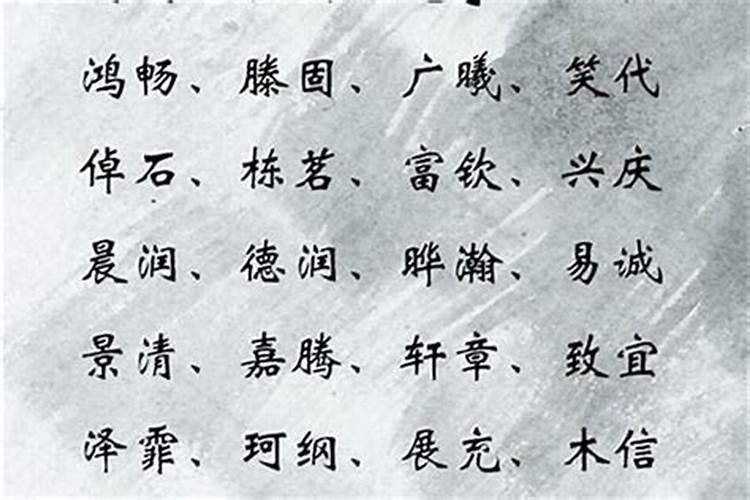 鸿畅、滕固、广曦、笑代
倬石、栋茗、富钦、兴庆
晨润、德润、晔瀚、易诚
景清、嘉腾、轩章、致宜
泽霏、珂纲、展充、木信